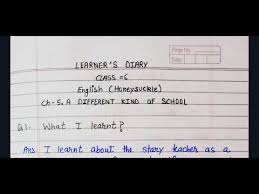 Page No.
Date
LEARNER'S DIARY
CLASS-6
English (Honeysuckle)
Ch-5. A DIFFERENT KIND OF SCHOOL
Q1. What I learnt?
Ans I learnt about the story teacher as a